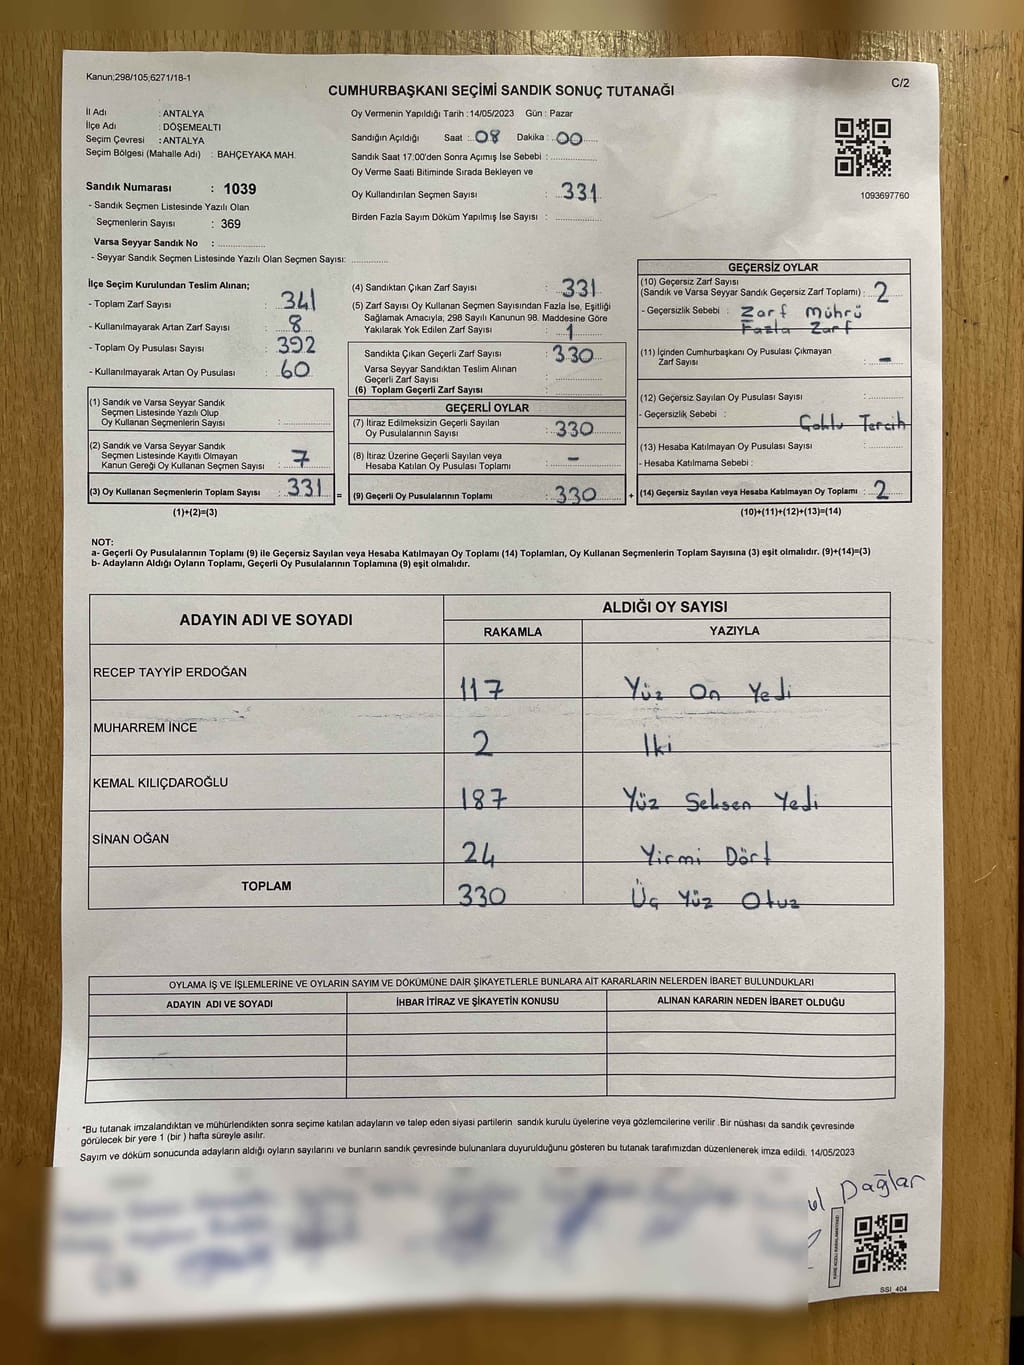 Kanun;298/105;6271/18-1
C/2
CUMHURBAŞKANI SEÇİMİ SANDIK SONUÇ TUTANAĞI
İl Adı : ANTALYA
İlçe Adı : DÖŞEMEALTI
Seçim Çevresi : ANTALYA
Seçim Bölgesi (Mahalle Adı) : BAHÇEYAKA MAH.
Sandık Numarası : 1039
- Sandık Seçmen Listesinde Yazılı Olan
Seçmenlerin Sayısı : 369
Varsa Seyyar Sandık No :
- Seyyar Sandık Seçmen Listesinde Yazılı Olan Seçmen Sayısı:
Oy Vermenin Yapıldığı Tarih :14/05/2023 Gün : Pazar
Sandığın Açıldığı Saat : 08 Dakika : 00
Sandık Saat 17:00'den Sonra Açımış İse Sebebi :
Oy Verme Saati Bitiminde Sırada Bekleyen ve
Oy Kullandırılan Seçmen Sayısı : 331
Birden Fazla Sayım Döküm Yapılmış İse Sayısı :
1093697760
İlçe Seçim Kurulundan Teslim Alınan;
- Toplam Zarf Sayısı : 341
- Kullanılmayarak Artan Zarf Sayısı : 8
- Toplam Oy Pusulası Sayısı : 392
- Kullanılmayarak Artan Oy Pusulası : 60
(1) Sandık ve Varsa Seyyar Sandık
Seçmen Listesinde Yazılı Olup
Oy Kullanan Seçmenlerin Sayısı :
(2) Sandık ve Varsa Seyyar Sandık
Seçmen Listesinde Kayıtlı Olmayan
Kanun Gereği Oy Kullanan Seçmen Sayısı : 7
(3) Oy Kullanan Seçmenlerin Toplam Sayısı : 331 =
(1)+(2)=(3)
(4) Sandıktan Çıkan Zarf Sayısı : 331
(5) Zarf Sayısı Oy Kullanan Seçmen Sayısından Fazla İse, Eşitliği
Sağlamak Amacıyla, 298 Sayılı Kanunun 98. Maddesine Göre
Yakılarak Yok Edilen Zarf Sayısı : 1
Sandıkta Çıkan Geçerli Zarf Sayısı : 330
Varsa Seyyar Sandıktan Teslim Alınan
Geçerli Zarf Sayısı :
(6) Toplam Geçerli Zarf Sayısı :
GEÇERLİ OYLAR
(7) İtiraz Edilmeksizin Geçerli Sayılan
Oy Pusulalarının Sayısı : 330
(8) İtiraz Üzerine Geçerli Sayılan veya
Hesaba Katılan Oy Pusulası Toplamı : -
(9) Geçerli Oy Pusulalarının Toplamı : 330 +
GEÇERSİZ OYLAR
(10) Geçersiz Zarf Sayısı
(Sandık ve Varsa Seyyar Sandık Geçersiz Zarf Toplamı) : 2
- Geçersizlik Sebebi : Zarf Mührü
Fazla Zarf
(11) İçinden Cumhurbaşkanı Oy Pusulası Çıkmayan
Zarf Sayısı : -
(12) Geçersiz Sayılan Oy Pusulası Sayısı :
- Geçersizlik Sebebi :
Tercih
(13) Hesaba Katılmayan Oy Pusulası Sayısı :
- Hesaba Katılmama Sebebi :
(14) Geçersiz Sayılan veya Hesaba Katılmayan Oy Toplamı : 2
(10)+(11)+(12)+(13)=(14)
NOT:
a- Geçerli Oy Pusulalarının Toplamı (9) ile Geçersiz Sayılan veya Hesaba Katılmayan Oy Toplamı (14) Toplamları, Oy Kullanan Seçmenlerin Toplam Sayısına (3) eşit olmalıdır. (9)+(14)=(3)
b- Adayların Aldığı Oyların Toplamı, Geçerli Oy Pusulalarının Toplamına (9) eşit olmalıdır.
ADAYIN ADI VE SOYADI
ALDIĞI OY SAYISI
RAKAMLA YAZIYLA
RECEP TAYYİP ERDOĞAN 117 Yüz On Yedi
MUHARREM İNCE 2 Iki
KEMAL KILIÇDAROĞLU 187 Yüz Seksen Yedi
SİNAN OĞAN 24 Yirmi Dört
TOPLAM 330 Üç Yüz Otuz
OYLAMA İŞ VE İŞLEMLERİNE VE OYLARIN SAYIM VE DÖKÜMÜNE DAİR ŞİKAYETLERLE BUNLARA AİT KARARLARIN NELERDEN İBARET BULUNDUKLARI
ADAYIN ADI VE SOYADI İHBAR İTİRAZ VE ŞİKAYETİN KONUSU ALINAN KARARIN NEDEN İBARET OLDUĞU
*Bu tutanak imzalandıktan ve mühürlendikten sonra seçime katılan adayların ve talep eden siyasi partilerin sandık kurulu üyelerine veya gözlemcilerine verilir .Bir nüshası da sandık çevresinde
görülecek bir yere 1 (bir ) hafta süreyle asılır.
Sayım ve döküm sonucunda adayların aldığı oyların sayılarını ve bunların sandık çevresinde bulunanlara duyurulduğunu gösteren bu tutanak tarafımızdan düzenlenerek imza edildi. 14/05/2023
ul Dağlar
KARE KODU KARALAMAYINIZ
SSI_404